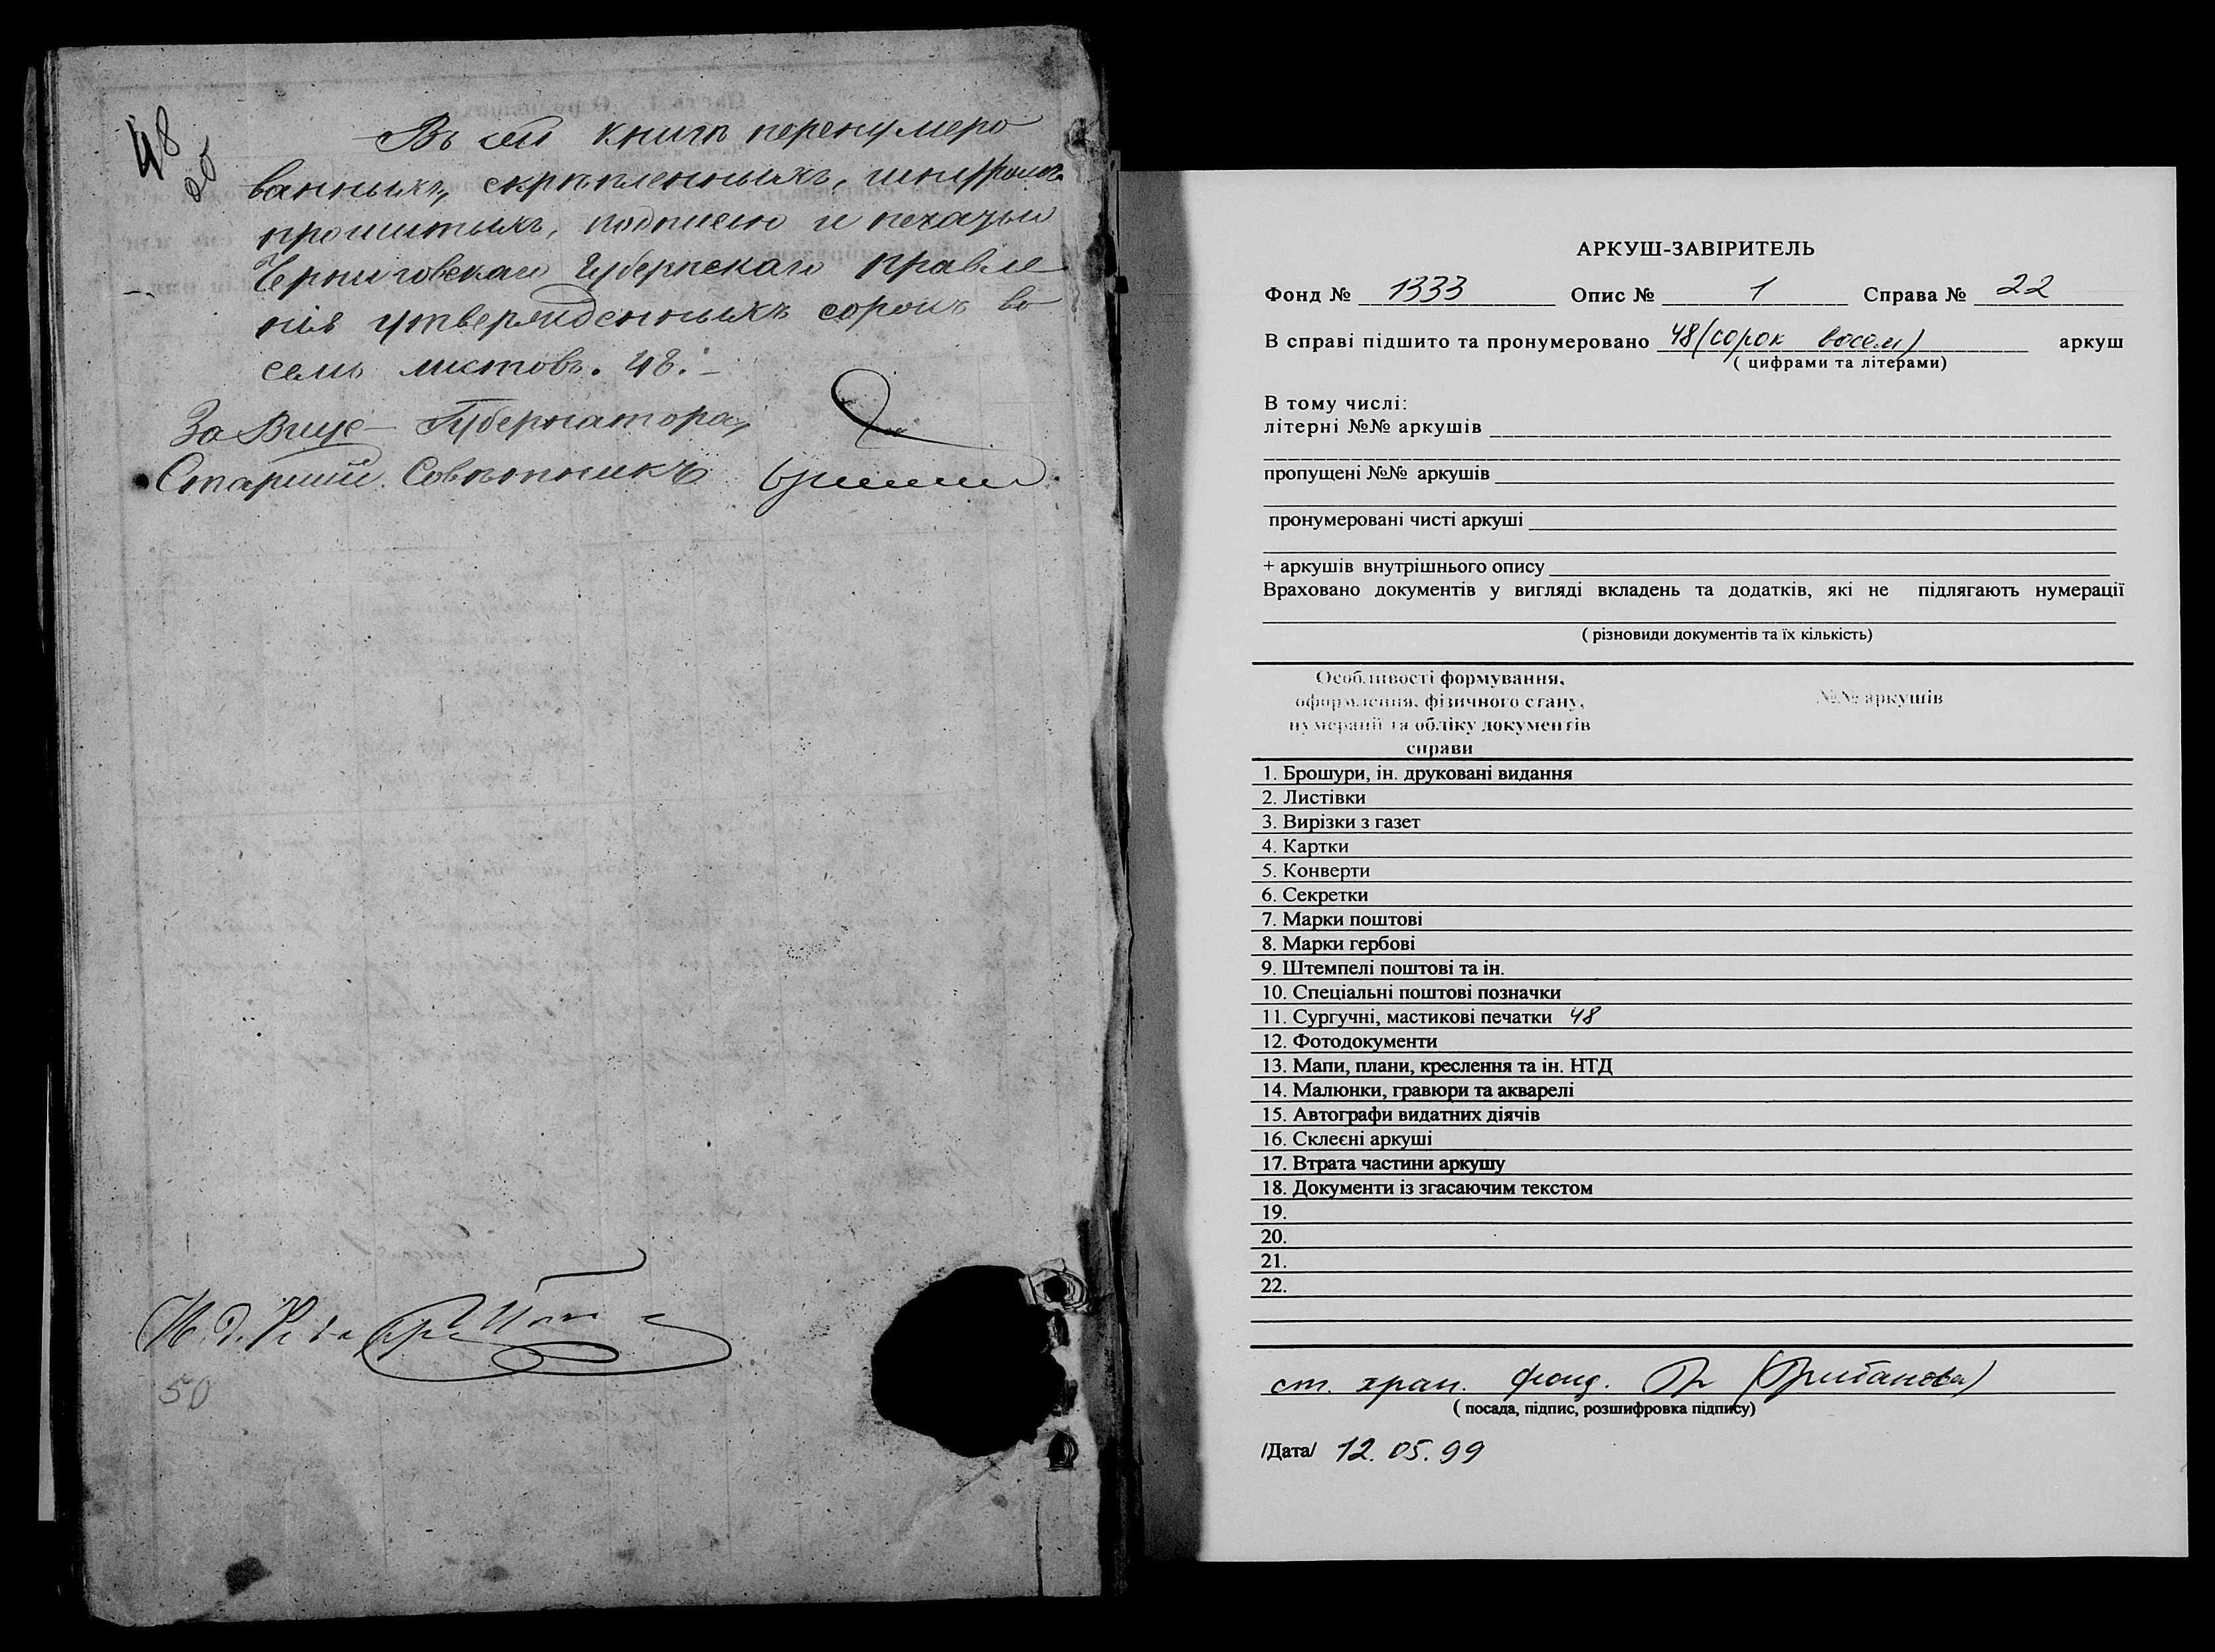 48
об
Въ сей книгѣ перенумеро
ванныхъ, скрѣпленныхъ, шнуромъ
прошитыхъ, подписью и печатью
Черниговскаго Губернскаго Правле
нія утвержденныхъ сорокъ во
семь листовъ. 48.–
За Вице-Губернатора,
Старшій Совѣтникъ
И. д.
50
АРКУШ-ЗАВІРИТЕЛЬ
Фонд № 1333 Опис № 1 Справа № 22
В справі підшито та пронумеровано 48 (сорок восем) аркуш
( цифрами та літерами)
В тому числі:
літерні №№ аркушів
пропущені №№ аркушів
пронумеровані чисті аркуші
+ аркушів внутрішнього опису
Враховано документів у вигляді вкладень та додатків, які не підлягають нумерації
( різновиди документів та їх кількість)
Особливості формування,
оформлення, фізичного стану,
нумерації та обліку документів
справи
№№ аркушів
1. Брошури, ін. друковані видання
2. Листівки
3. Вирізки з газет
4. Картки
5. Конверти
6. Секретки
7. Марки поштові
8. Марки гербові
9. Штемпелі поштові та ін.
10. Спеціальні поштові позначки
11. Сургучні, мастикові печатки 48
12. Фотодокументи
13. Мапи, плани, креслення та ін. НТД
14. Малюнки, гравюри та акварелі
15. Автографи видатних діячів
16. Склеєні аркуші
17. Втрата частини аркушу
18. Документи із згасаючим текстом
19.
20.
21.
22.
ст. хран. фонд. Гр (Грибанова)
( посада, підпис, розшифровка підпису)
/Дата/ 12.05.99